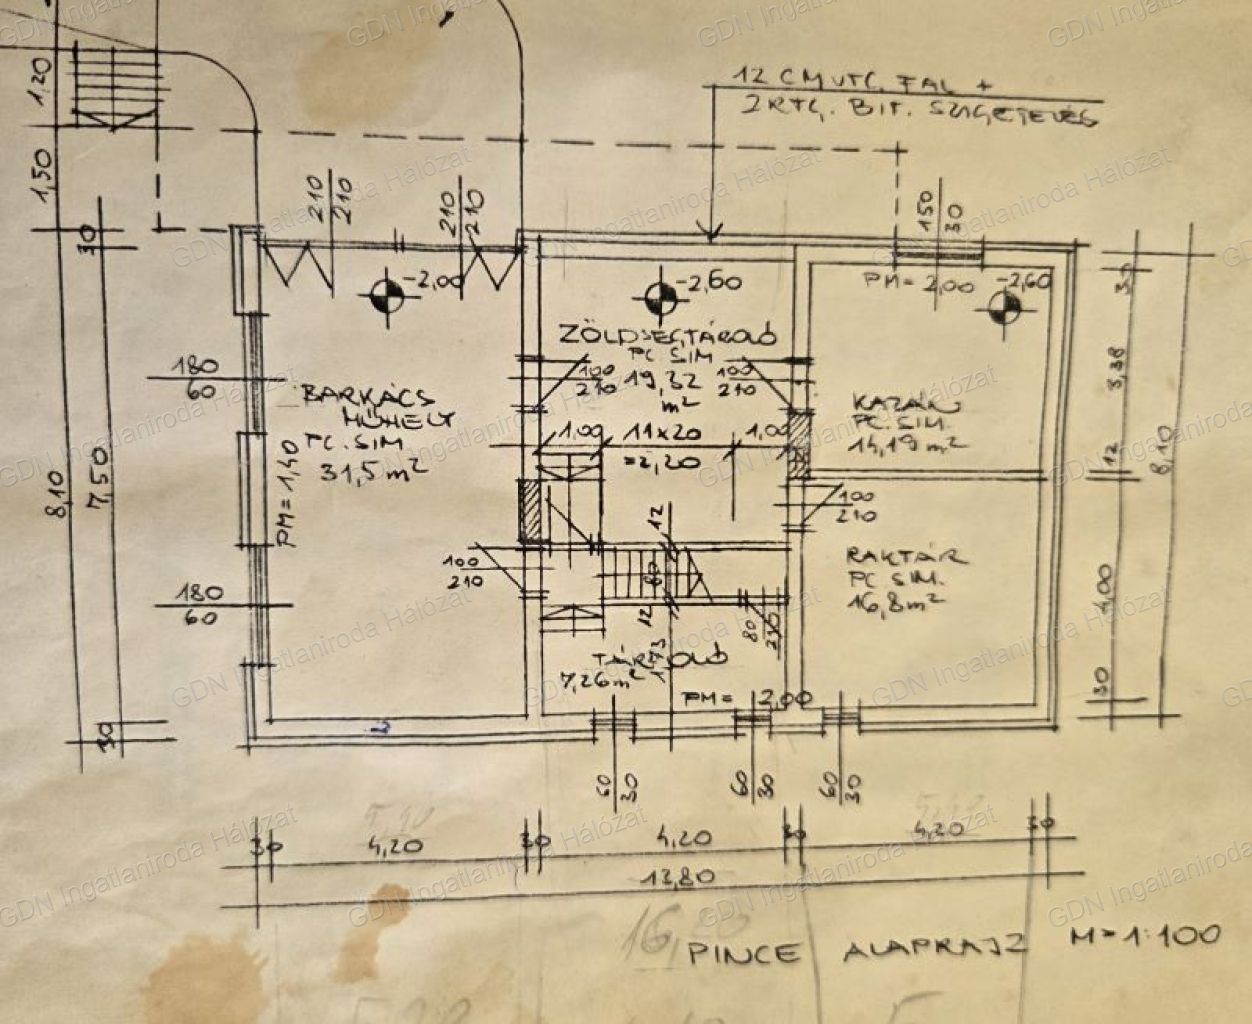 12 CM VTG. FAL +
2 RTG. BIT. SZIGETELÉS
1,20
1,50
30
210
210
210
210
150
30
-2,00
-2,60
PM= 2,00
-2,60
30
180
60
ZÖLDSÉGTÁROLÓ
PC SIM
19,32
m²
100
210
100
210
BARKÁCS
MŰHELY
PC. SIM
31,5 m²
PM= 1,40
KAZÁN
PC. SIM.
14,19 m²
3,38
12
8,10
8,10
7,50
1,00
11x20
=2,20
1,00
100
210
12
60
12
100
210
RAKTÁR
PC SIM.
16,8 m²
4,00
180
60
80
210
TÁROLÓ
7,26 m²
1,73
PM= 2,00
30
30
60
30
60
30
60
30
30
4,20
30
4,20
30
4,20
30
13,80
PINCE ALAPRAJZ M=1:100
GDN Ingatlaniroda Hálózat